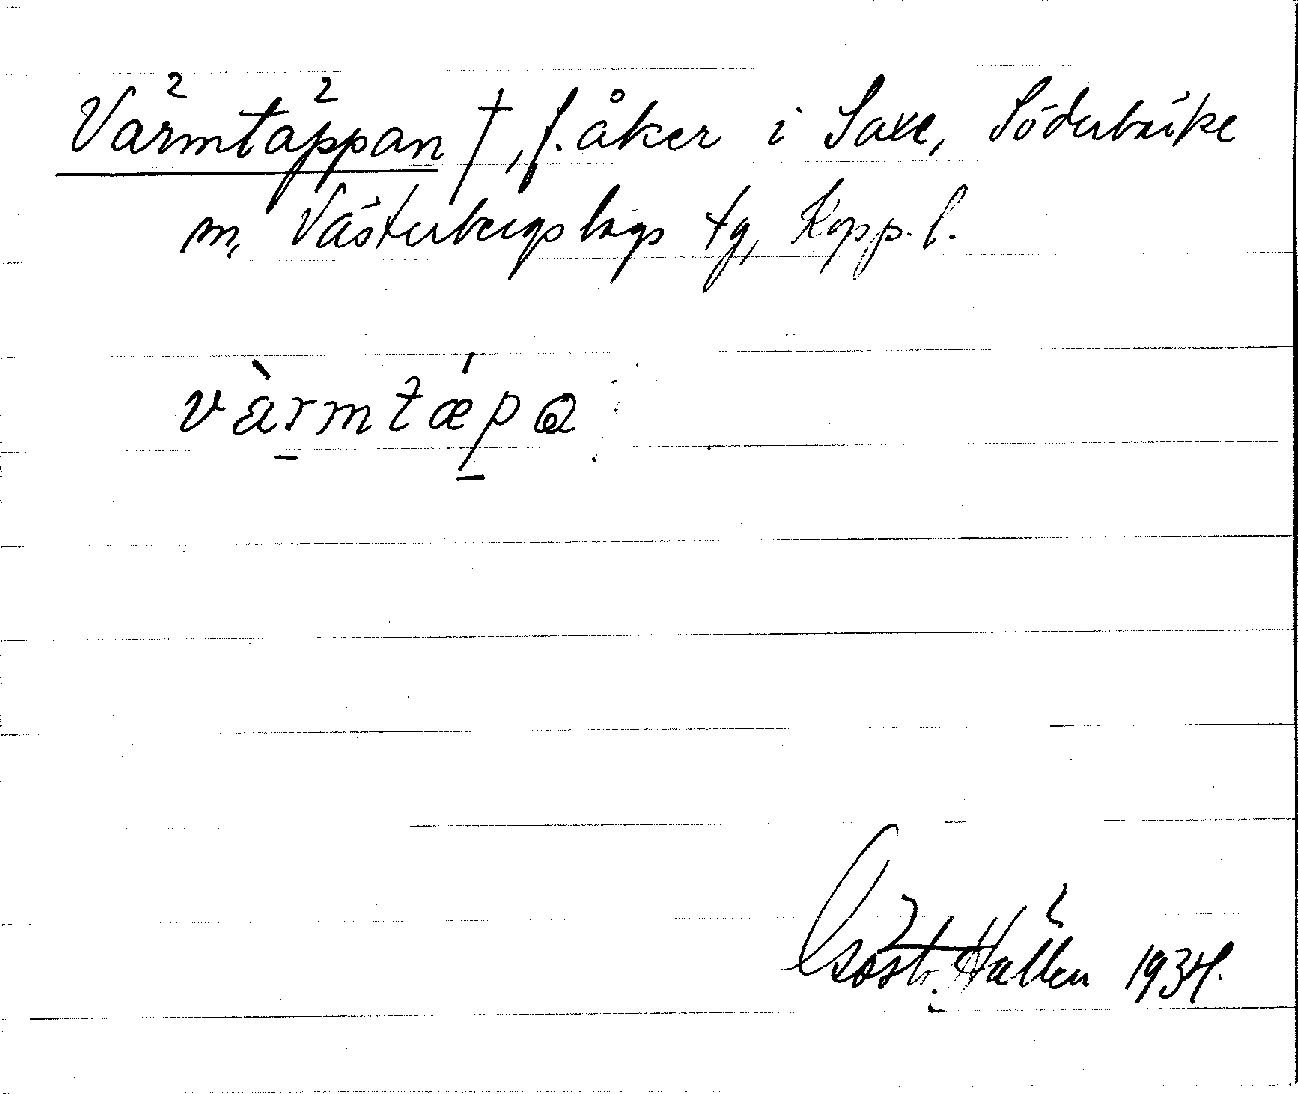 Värmtäppan †, f. åker i Saxe, Söderbärke
m, Västerbergslags tg, Kopp. l.
vàrmtǽpa
Göstr. Hallen 1934.